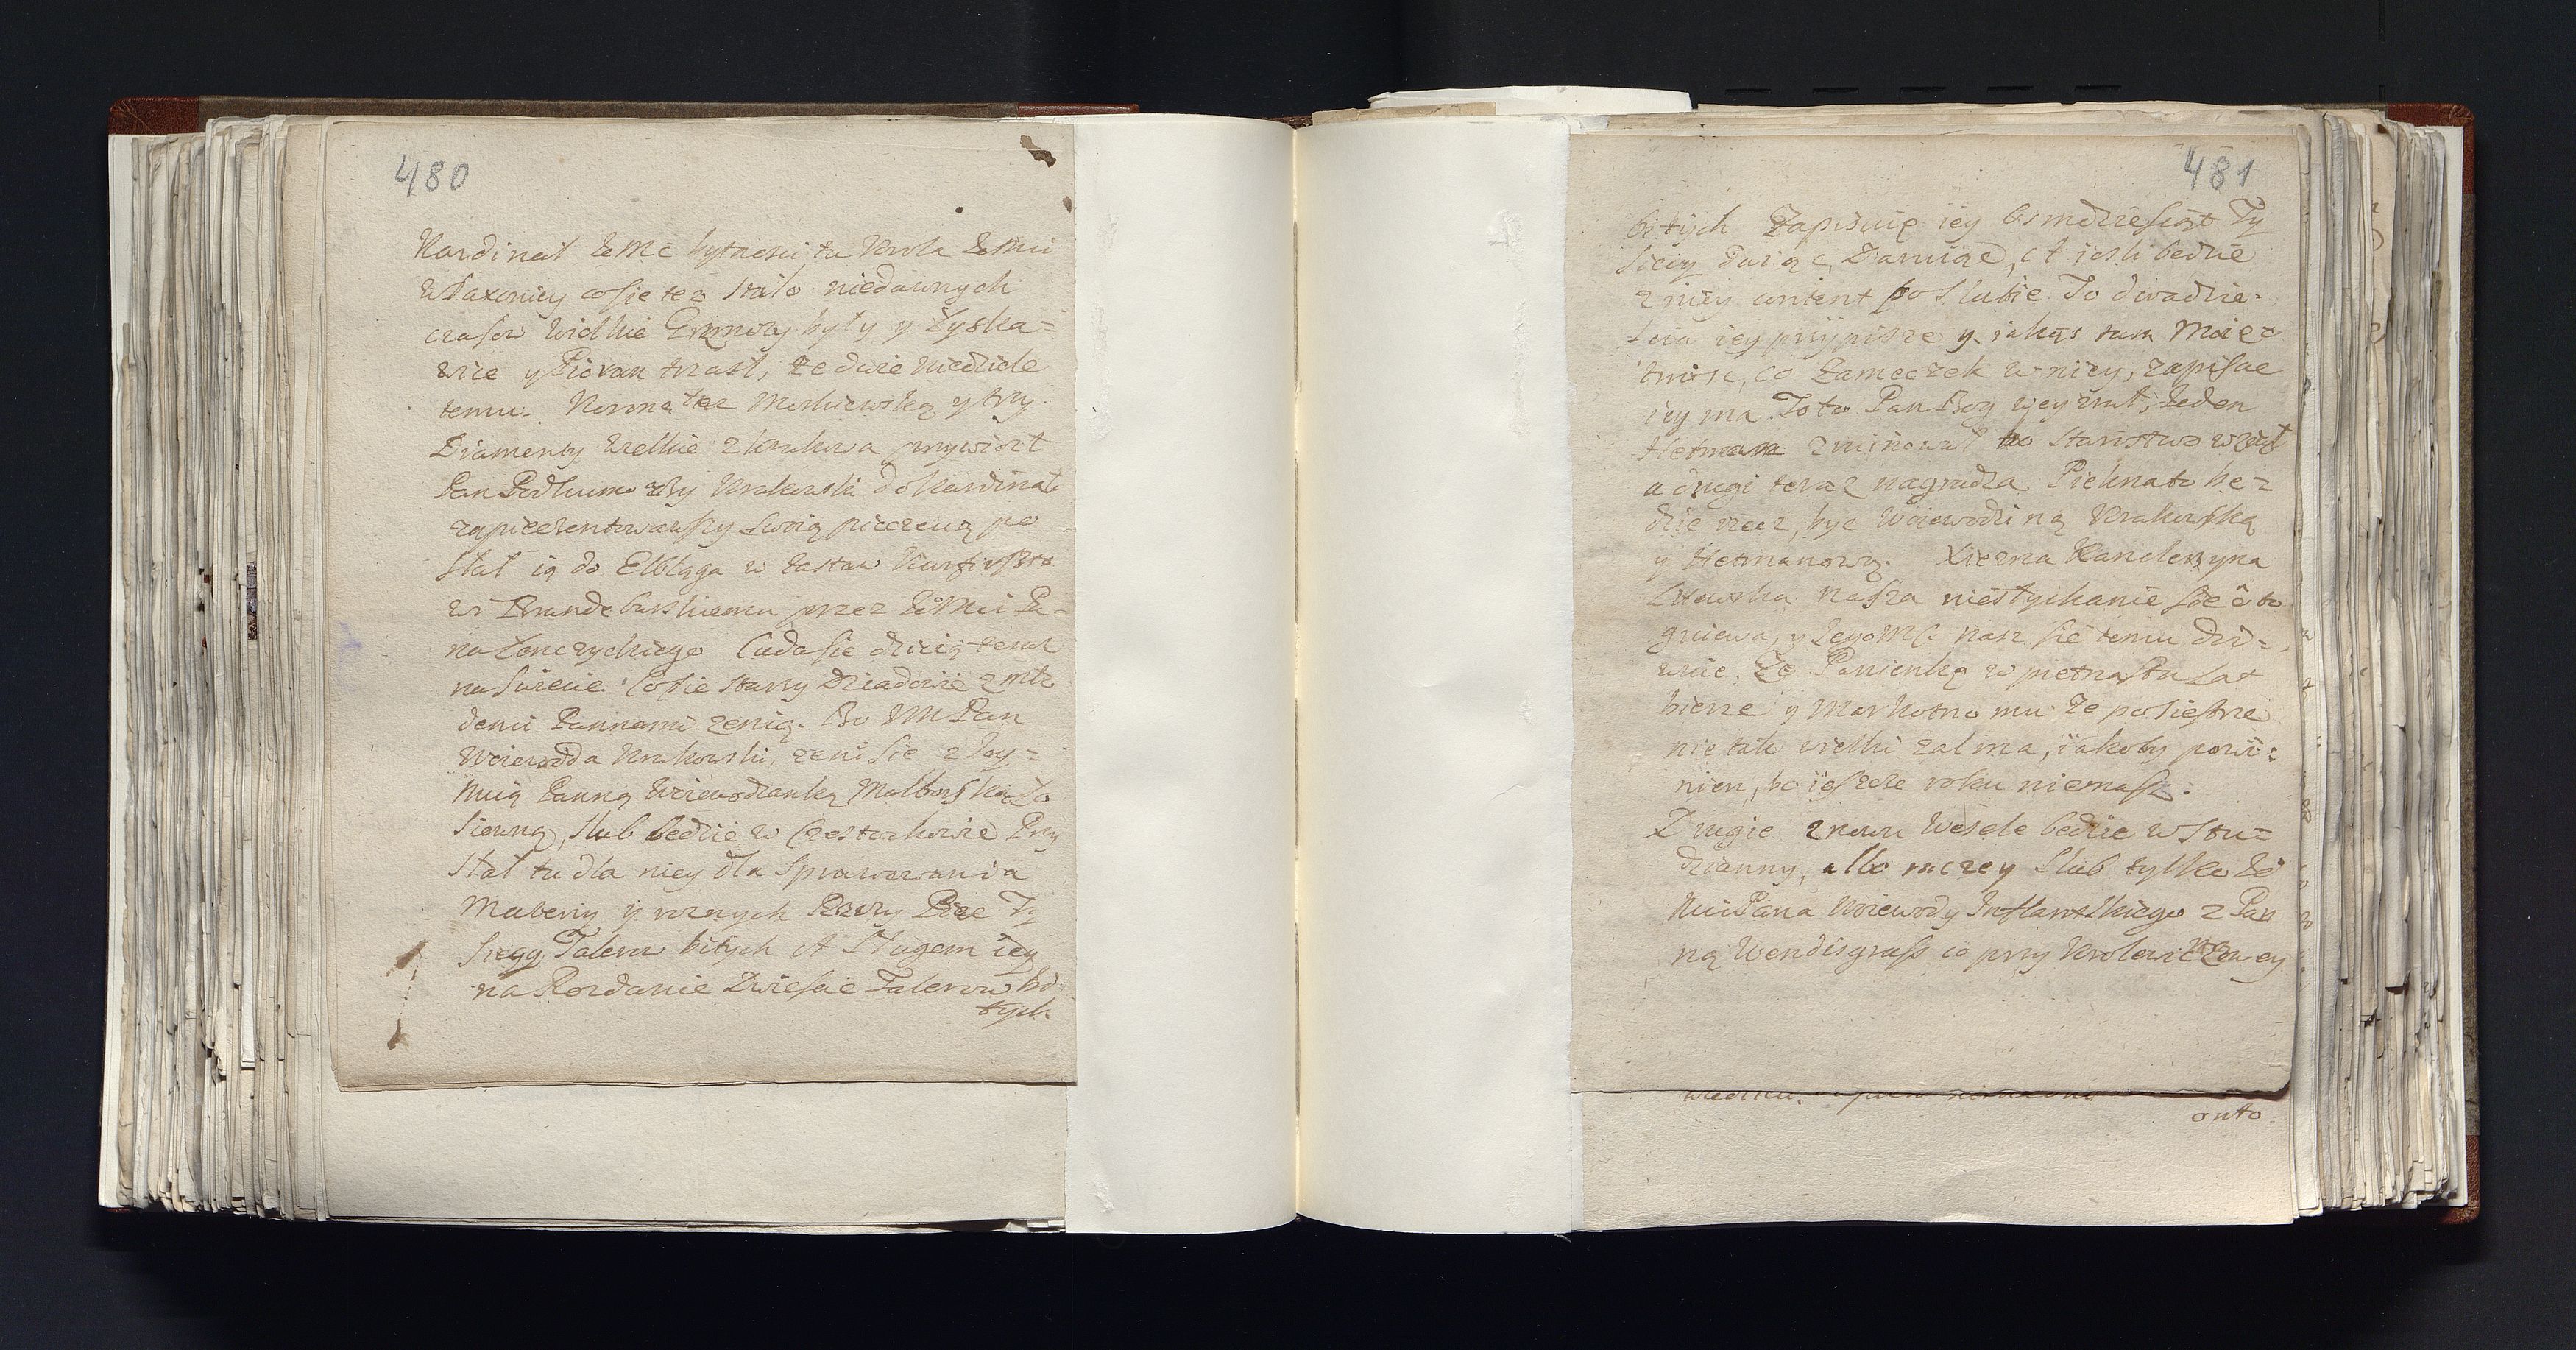 480
Kardinał JeMc bytnosci tu Krola JeMci
w Saxoniey co sie tez stało niedawnych
czasow Wielkie Grzmoty były y Łyska=
wice y Piorun trzasł, ze dwie Niedziele
temu. Korone tez Moskiewską y trzy
Diamenty Wielkie z Krakowa przywiozł
Pan Podkomorzy Krakowski do Kardinała
zapieczentowawszy Swoią pieczencią po
słał ią do Elbląga w zastaw Kurfirszto
wi Brandeburskiemu przez JeoMci Pa=
na Zonczyckiego Cuda sie dzieią teraz
na Swiecie Co sie starzy Dziadowie z mło
demi Pannami zenią. Bo IM Pan
Woiewoda Krakowski, zeni sie z Jey=
Mcią Panną Woiewodzanką Malborską Zo
siowną, slub będzie w Czestochowie Przy
słał tu dla niey dla Sprawowania
Materiy y roznych Rzeczy Piec Ty
sięcy Talerow bitych A Sługom iey
na Rozdanie Dwiescie Talerow bi
tych
481
bitych Zapisuię iey osmdziesiąt Ty
sięcy daiąc, Daruiąc, A iesli bedzie
z niey content po slubie To dwadzie=
scia iey przypisze y iakąs tam Maięt
nosc, co Zameczek w niey, zapisac
iey ma Toto Pan Bog weyzrał, Jeden
Hetman zruinował bo Starostwo wziął
a drugi teraz nagradza Piekna to be=
dzie rzecz, byc Woiewodziną Krakowską
y Hetmanową. Xiezna Kanclerzyna
Litewska Nasza niesłychanie sie o to
gniewa, y JegoMc nasz sie temu dzi=
wuie. Ze Panienkę w pietnastu Lat
bierze y Markotno mu Ze po Siestrze
nie tak wielki zal ma, iakoby powi=
nien, bo ieszcze roku niemasz.
Drugie znowu Wesele bedzie w Stu=
dzianny, albo raczey slub tylko Je
Mci Pana Woiewody Inflantskiego z Pan
ną Wendisgrass co przy Krolewiczowey
onto